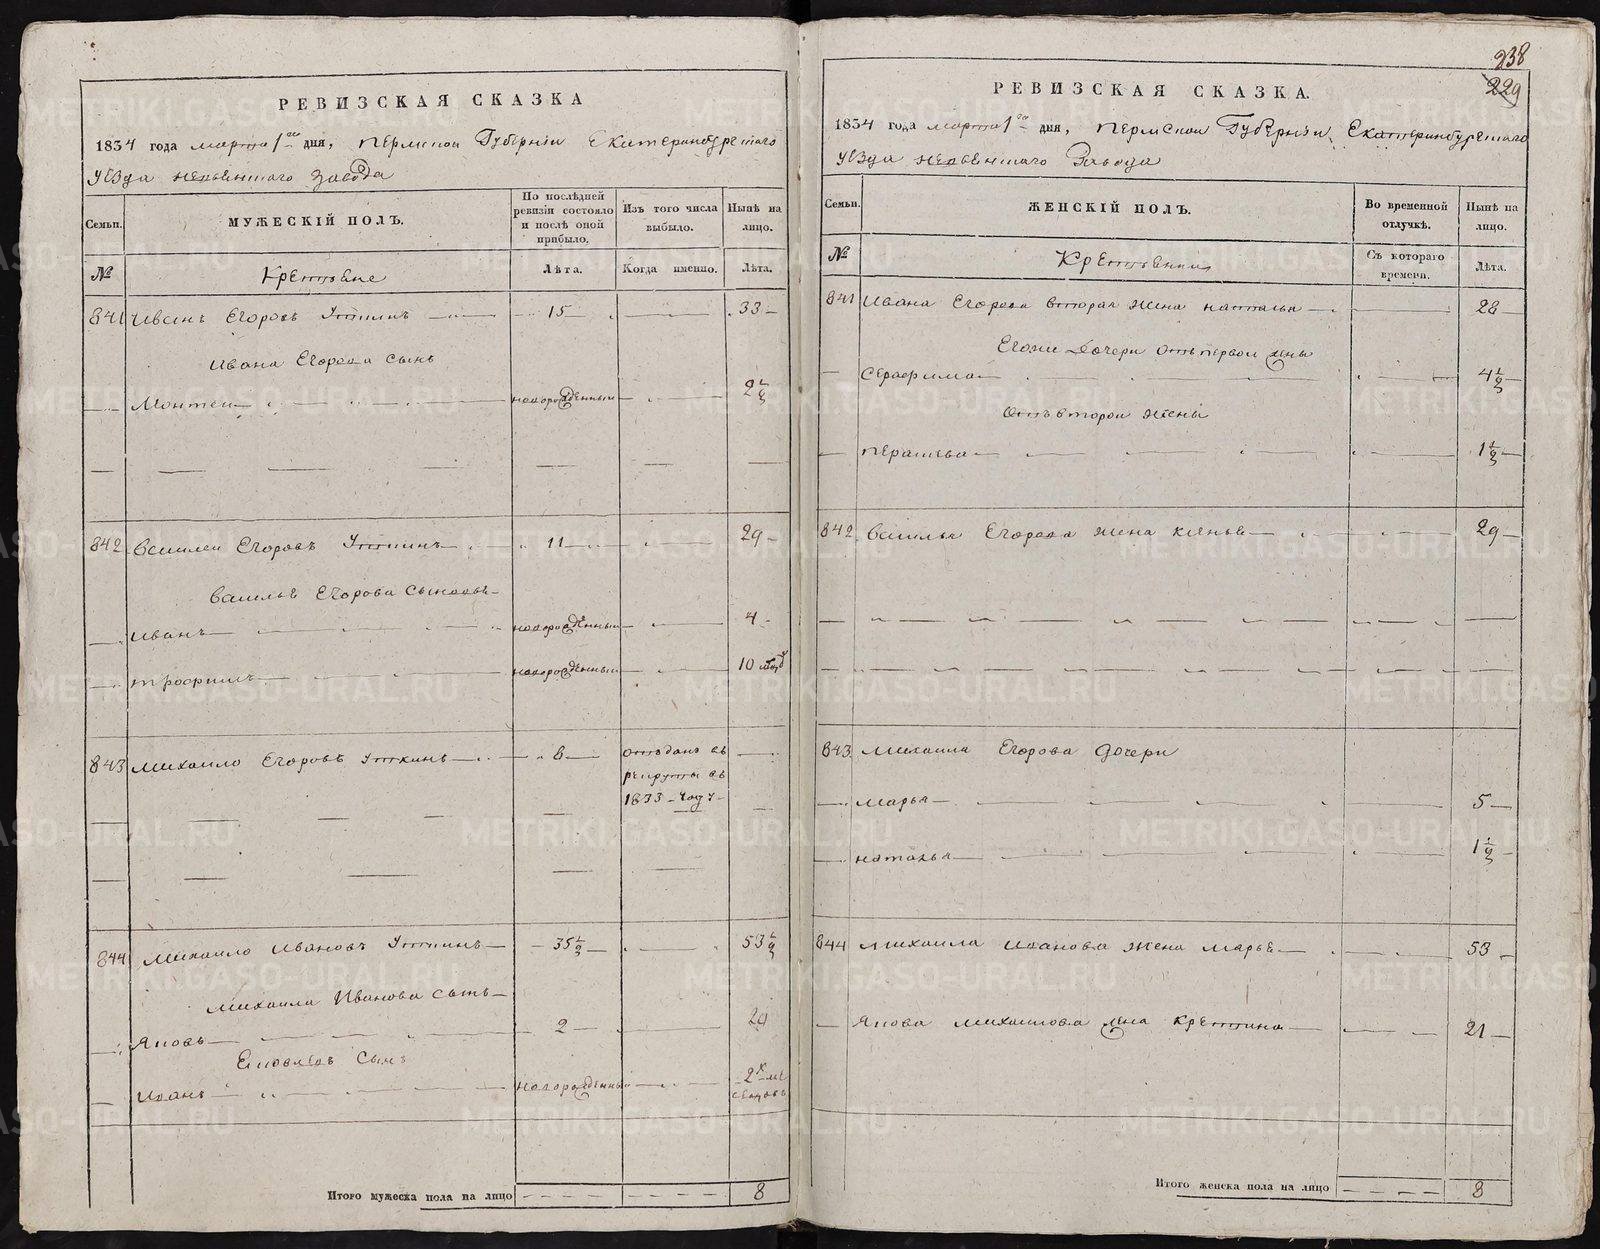 РЕВИЗСКАЯ СКАЗКА
1834 года марта 1го дня, Пермской Губернiи Екатеринбургскаго
уѣзда завода
Семьи.
МУЖЕСКIЙ ПОЛЪ.
По послѣдней ревизiи состояло и послѣ оной прибыло.
Изъ того числа выбыло.
Нынѣ на лицо.
№
Крестьяне
Лѣта.
Когда именно.
Лѣта.
841 Иванъ Егоровъ Уткинъ 15 33
Ивана Егорова сынъ
новорожденный 2 1/2
842 Василей Егоровъ Уткинъ 11 29
Василья Егорова сыновья
Иванъ новорожденный 4
Трофимъ новорожденный 10
843 Михайло Егоровъ Уткинъ 8 отъданъ въ
рекруты въ
1833 году
844 Михайло Ивановъ Уткинъ 35 1/2 53 1/2
Михаила Иванова сынъ
Яковъ 2
Яковлевъ сынъ
Иванъ новорожденный 2
Итого мужеска пола на лицо 8
238
229
РЕВИЗСКАЯ СКАЗКА.
1834 года марта 1го дня, Пермской Губернiи Екатеринбургскаго
уѣзда завода
Семьи.
ЖЕНСКIЙ ПОЛЪ.
Во временной отлучкѣ.
Нынѣ на лицо.
№
Крестьянки
Съ котораго времени.
Лѣта.
841 Ивана Егорова вторая жена Наталья 28
Егожи дочери отъ первой жены
Серафима 4 1/2
Отъ второй жены
1 1/2
842 Василья Егорова жена 29
843 Михаила Егорова дочери
Марья 5
Наталья 1 1/2
844 Михаила Иванова жена Марья 53
Якова Михайлова жена 21
Итого женска пола на лицо 8
METRIKI.GASO-URAL.RU